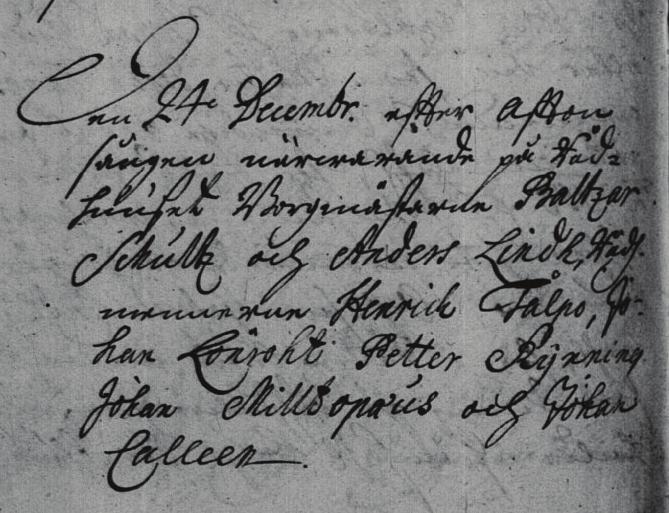 Den 24e Decembr. effter Affton
sången närwarande på Råd=
huuset Borgmästarne Baltzar
Schultz och Anders Lindh, Råd¬
mennerne Henrich Tålpo, Jo¬
han Lönroht Petter Rynning
Johan Milltopæus och Johan
Calleen